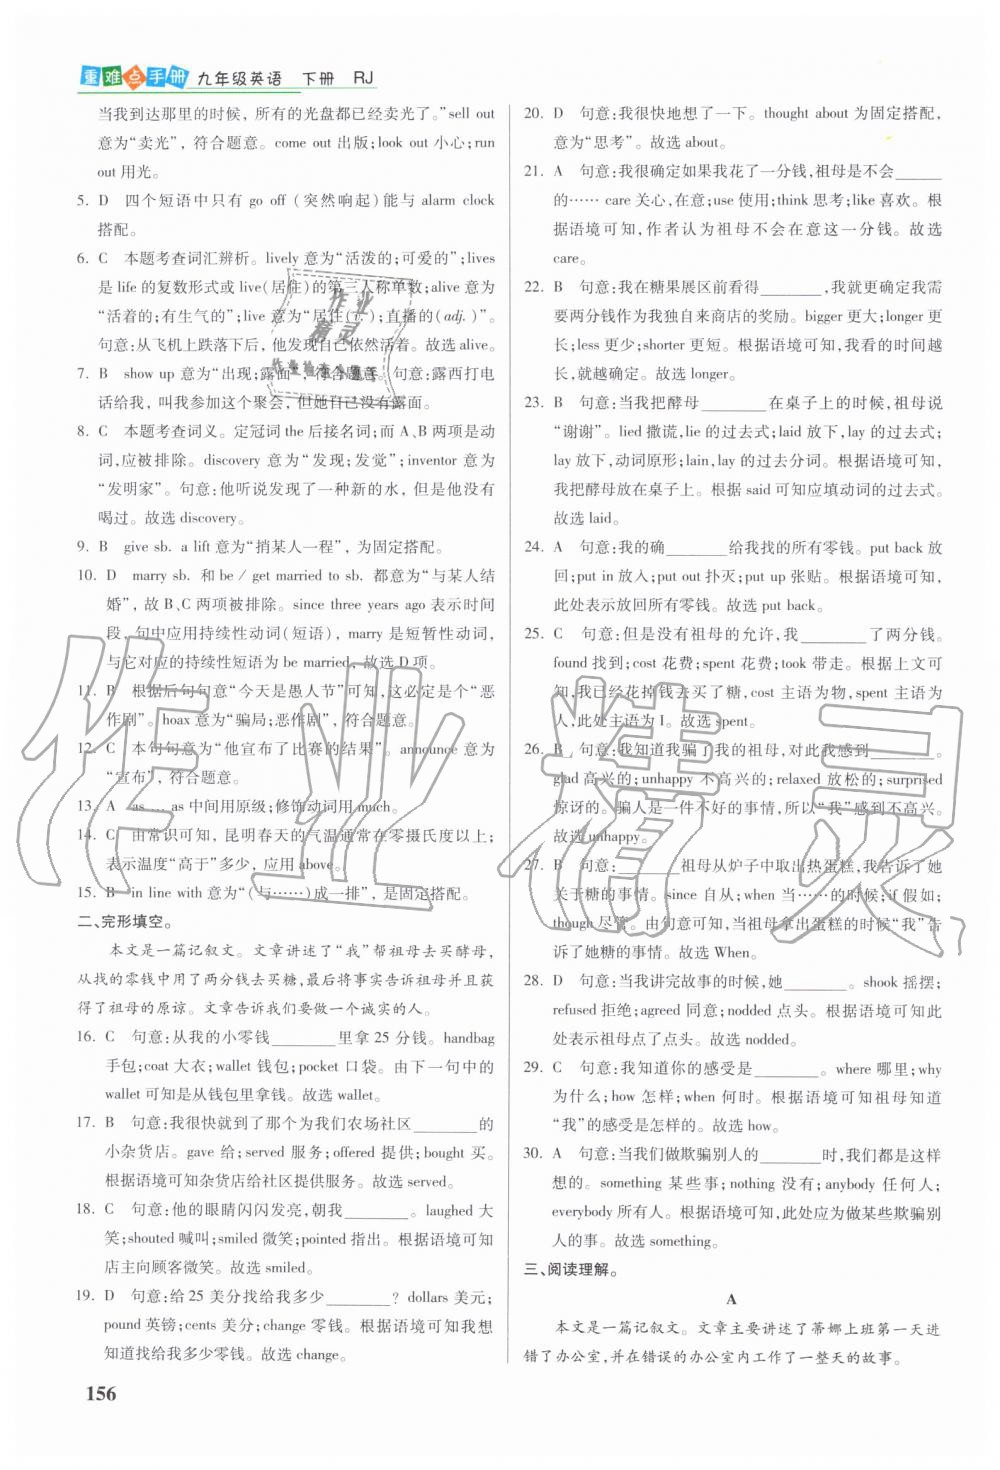 重难点手册 九年级英语 下册 RJ
当我到达那里的时候，所有的光盘都已经卖光了。”sell out
意为“卖光”，符合题意。come out 出版；look out 小心；run
out 用光。
5. D 四个短语中只有 go off（突然响起）能与 alarm clock
搭配。
6. C 本题考查词汇辨析。lively 意为“活泼的；可爱的”；lives
是 life 的复数形式或 live(居住)的第三人称单数；alive 意为
“活着的；有生气的”；live 意为“居住(v.)；直播的(adj.)”。
句意：从飞机上跌落下后，他发现自己依然活着。故选 alive。
7. B show up 意为“出现；露面”，符合题意。句意：露西打电
话给我，叫我参加这个聚会，但她自己没有露面。
8. C 本题考查词义。定冠词 the 后接名词；而 A、B 两项是动
词，应被排除。discovery 意为“发现；发觉”；inventor 意为
“发明家”。句意：他听说发现了一种新的水，但是还没有
喝过。故选 discovery。
9. B give sb. a lift 意为“捎某人一程”，为固定搭配。
10. D marry sb. 和 be / get married to sb. 都意为“与某人结
婚”，故 B、C 两项被排除。since three years ago 表示时间
段，句中应用持续性动词(短语)，marry 是短暂性动词，
与它对应的持续性短语为 be married，故选 D 项。
11. B 根据后句句意“今天是愚人节”可知，这必定是个“恶
作剧”。hoax 意为“骗局；恶作剧”，符合题意。
12. C 本句句意为“他宣布了比赛的结果”。announce 意为
“宣布”，符合题意。
13. A as … as 中间用原级；修饰动词用 much。
14. C 由常识可知，昆明春天的气温通常在零摄氏度以上；
表示温度“高于”多少，应用 above。
15. B in line with 意为“(与……)成一排”，是固定搭配。
二、完形填空。
本文是一篇记叙文。文章讲述了“我”帮祖母去买酵母，
从找的零钱中用了两分钱去买糖，最后将事实告诉祖母并且获
得了祖母的原谅。文章告诉我们要做一个诚实的人。
16. C 句意：从我的小零钱________里拿 25 分钱。handbag
手包；coat 大衣；wallet 钱包；pocket 口袋。由下一句中的
wallet 可知是从钱包里拿钱。故选 wallet。
17. B 句意：我很快就到了那个为我们农场社区________的
小杂货店。gave 给；served 服务；offered 提供；bought 买。
根据语境可知杂货店给社区提供服务。故选 served。
18. C 句意：他的眼睛闪闪发亮，朝我________。laughed 大
笑；shouted 喊叫；smiled 微笑；pointed 指出。根据语境可知
店主向顾客微笑。故选 smiled。
19. D 句意：给 25 美分找给我多少________？dollars 美元；
pound 英镑；cents 美分；change 零钱。根据语境可知我想
知道找给我多少零钱。故选 change。
156
20. D 句意：我很快地想了一下。thought about 为固定搭配，
意为“思考”。故选 about。
21. A 句意：我很确定如果我花了一分钱，祖母是不会______
的…… care 关心，在意；use 使用；think 思考；like 喜欢。根
据语境可知，作者认为祖母不会在意这一分钱。故选
care。
22. B 句意：我在糖果展区前看得________，我就更确定需
要两分钱作为我独自来商店的奖励。bigger 更大；longer 更
长；less 更少；shorter 更短。根据语境可知，我看的时间越
长，就越确定。故选 longer。
23. B 句意：当我把酵母________在桌子上的时候，祖母说
“谢谢”。lied 撒谎，lie 的过去式；laid 放下，lay 的过去式；
lay 放下，动词原形；lain，lie 的过去分词。根据语境可知，我
把酵母放在桌子上。根据 said 可知应填动词的过去式。
故选 laid。
24. A 句意：我的确________给我找的所有零钱。put back 放
回；put in 放入；put out 扑灭；put up 张贴。根据语境可知，
此处表示放回所有零钱。故选 put back。
25. C 句意：但是没有祖母的允许，我________了两分钱。
found 找到；cost 花费；spent 花费；took 带走。根据上文可
知，我已经花掉钱去买了糖，cost 主语为物，spent 主语为
人，此处主语为 I。故选 spent。
26. B 句意：我知道我骗了我的祖母，对此我感到________。
glad 高兴的；unhappy 不高兴的；relaxed 放松的；surprised
惊讶的。骗人是一件不好的事情，所以“我”感到不高兴。
故选 unhappy。
27. B 句意：________祖母从炉子中取出热蛋糕，我告诉了她
关于糖的事情。since 自从；when 当……的时候；if 假如；
though 尽管。由句意可知，当祖母拿出蛋糕的时候“我”告
诉了她糖的事情。故选 When。
28. D 句意：当我讲完故事的时候，她________。shook 摇摆，
refused 拒绝；agreed 同意；nodded 点头。根据语境可知此
处表示祖母点了点头。故选 nodded。
29. C 句意：我知道你的感受是________。where 哪里；why
为什么；how 怎样；when 何时。根据语境可知祖母知道
“我”的感受是怎样的。故选 how。
30. A 句意：当我们做欺骗别人的________时，我们都是这样
想的。something 某些事；nothing 没有；anybody 任何人；
everybody 所有人。根据语境可知，此处应为做某些欺骗别
人的事。故选 something。
三、阅读理解。
A
本文是一篇记叙文。文章主要讲述了蒂娜上班第一天进
错了办公室，并在错误的办公室内工作了一整天的故事。
作业精灵